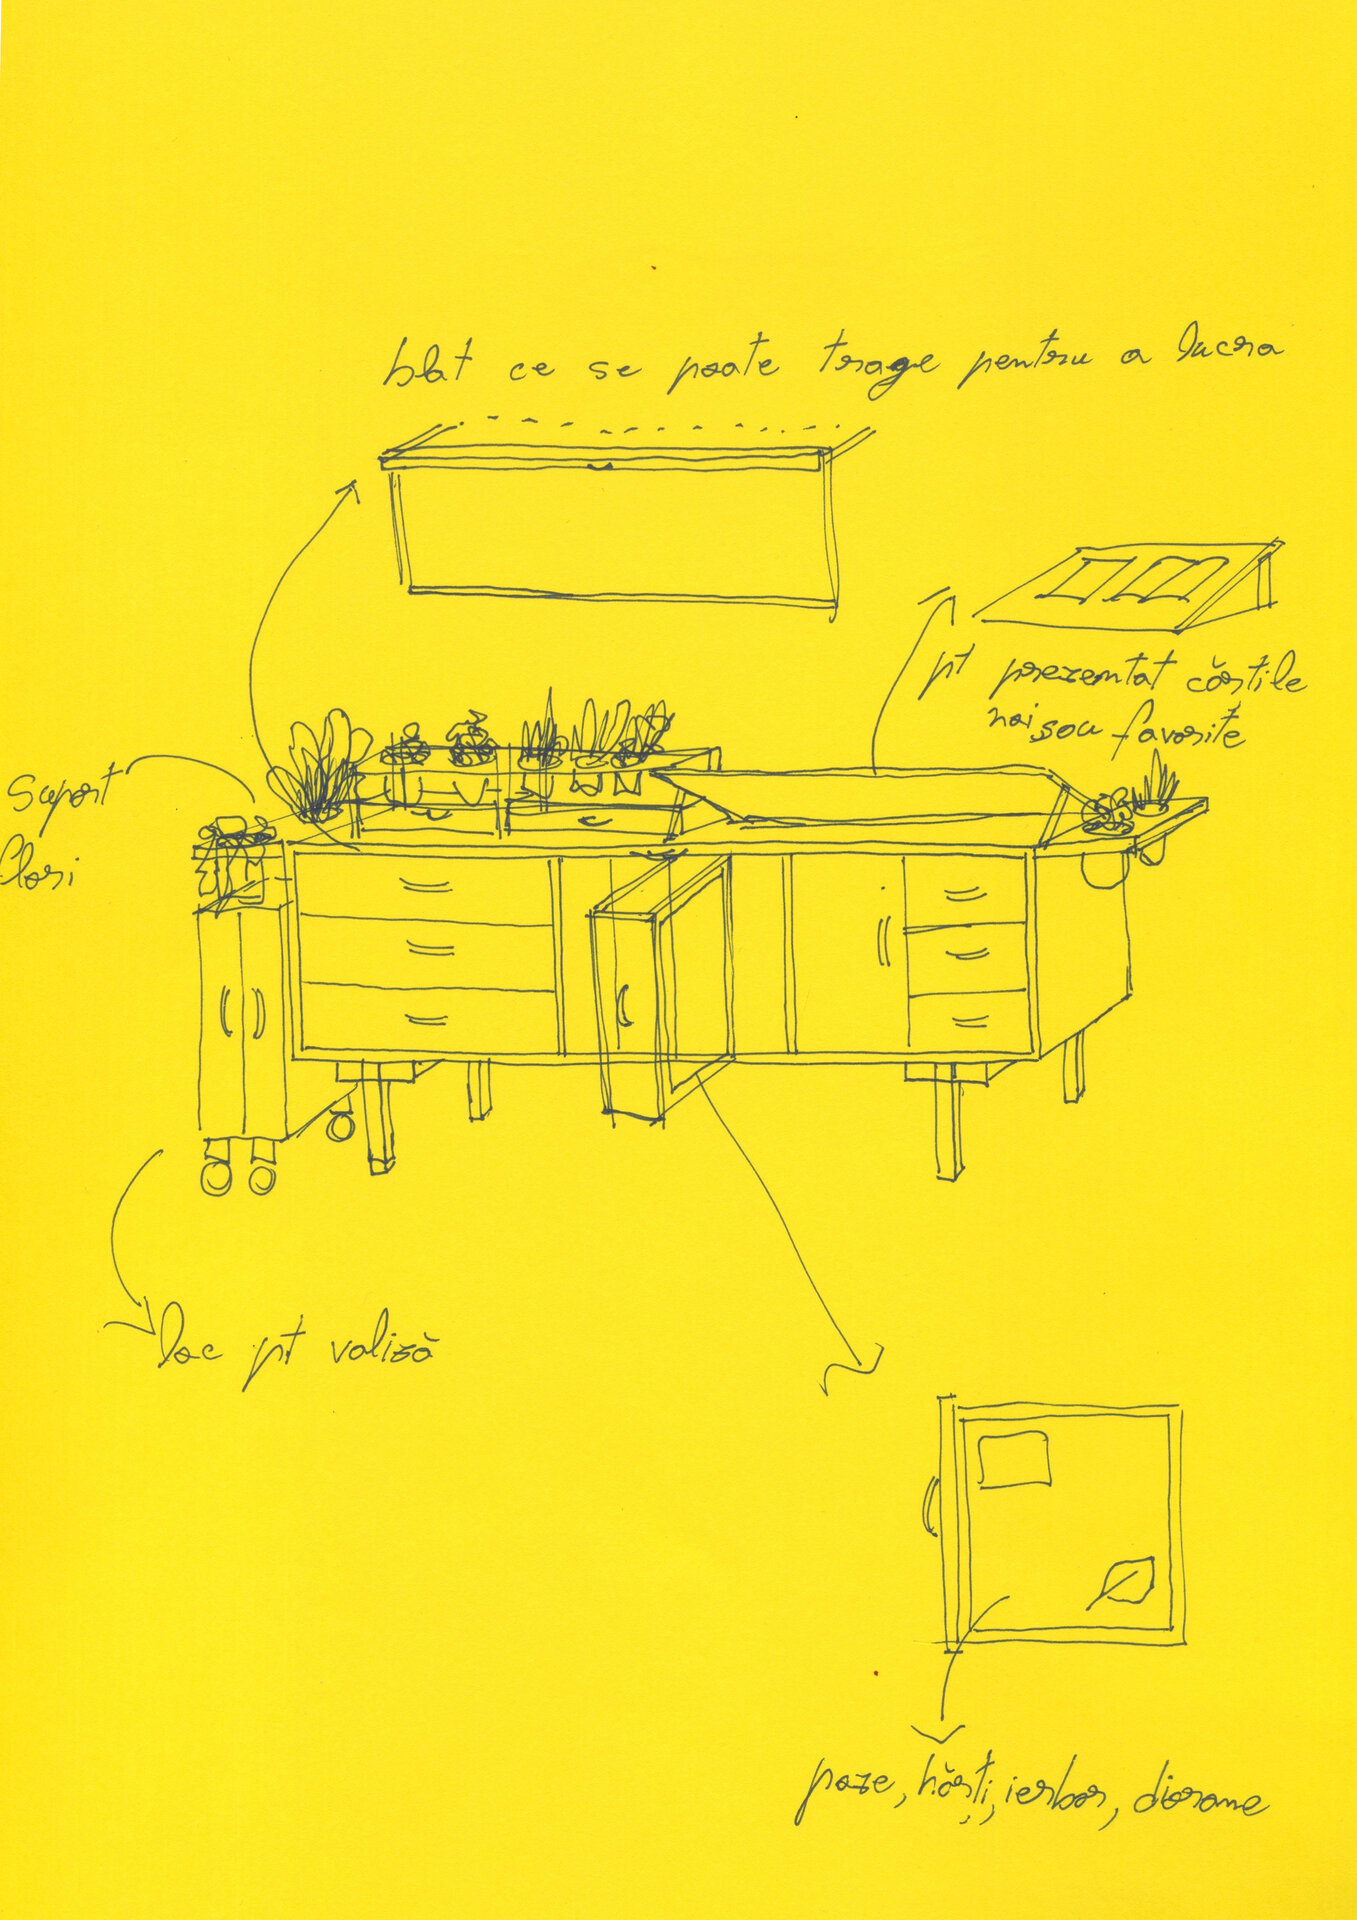 blat ce se poate trage pentru a lucra
pt prezentat cărțile
noi, sau favorite
suport
flori
loc pt valiză
poze, hărți, ierbar, diorame